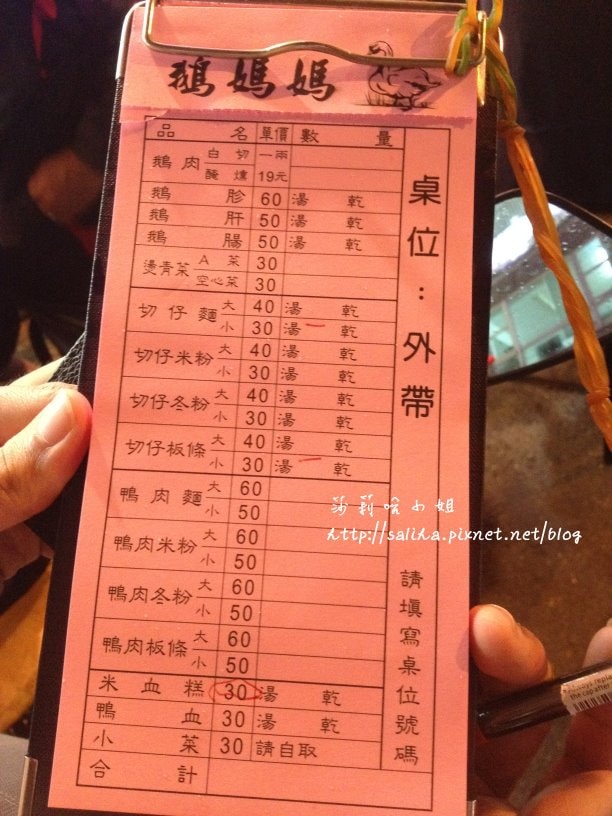 鵝媽媽
品名 單價 數量
鵝肉 白切 一兩
醃燻 19元
鵝胗 60 湯 乾
鵝肝 50 湯 乾
鵝腸 50 湯 乾
燙青菜 A菜 30
空心菜 30
切仔麵 大 40 湯 乾
小 30 湯 乾
切仔米粉 大 40 湯 乾
小 30 湯 乾
切仔冬粉 大 40 湯 乾
小 30 湯 乾
切仔板條 大 40 湯 乾
小 30 湯 乾
鴨肉麵 大 60
小 50
鴨肉米粉 大 60
小 50
鴨肉冬粉 大 60
小 50
鴨肉板條 大 60
小 50
米血糕 30 湯 乾
鴨血 30 湯 乾
小菜 30 請自取
合計
桌位：外帶
請填寫桌位號碼
莎莉哈小姐
http://saliha.pixnet.net/blog